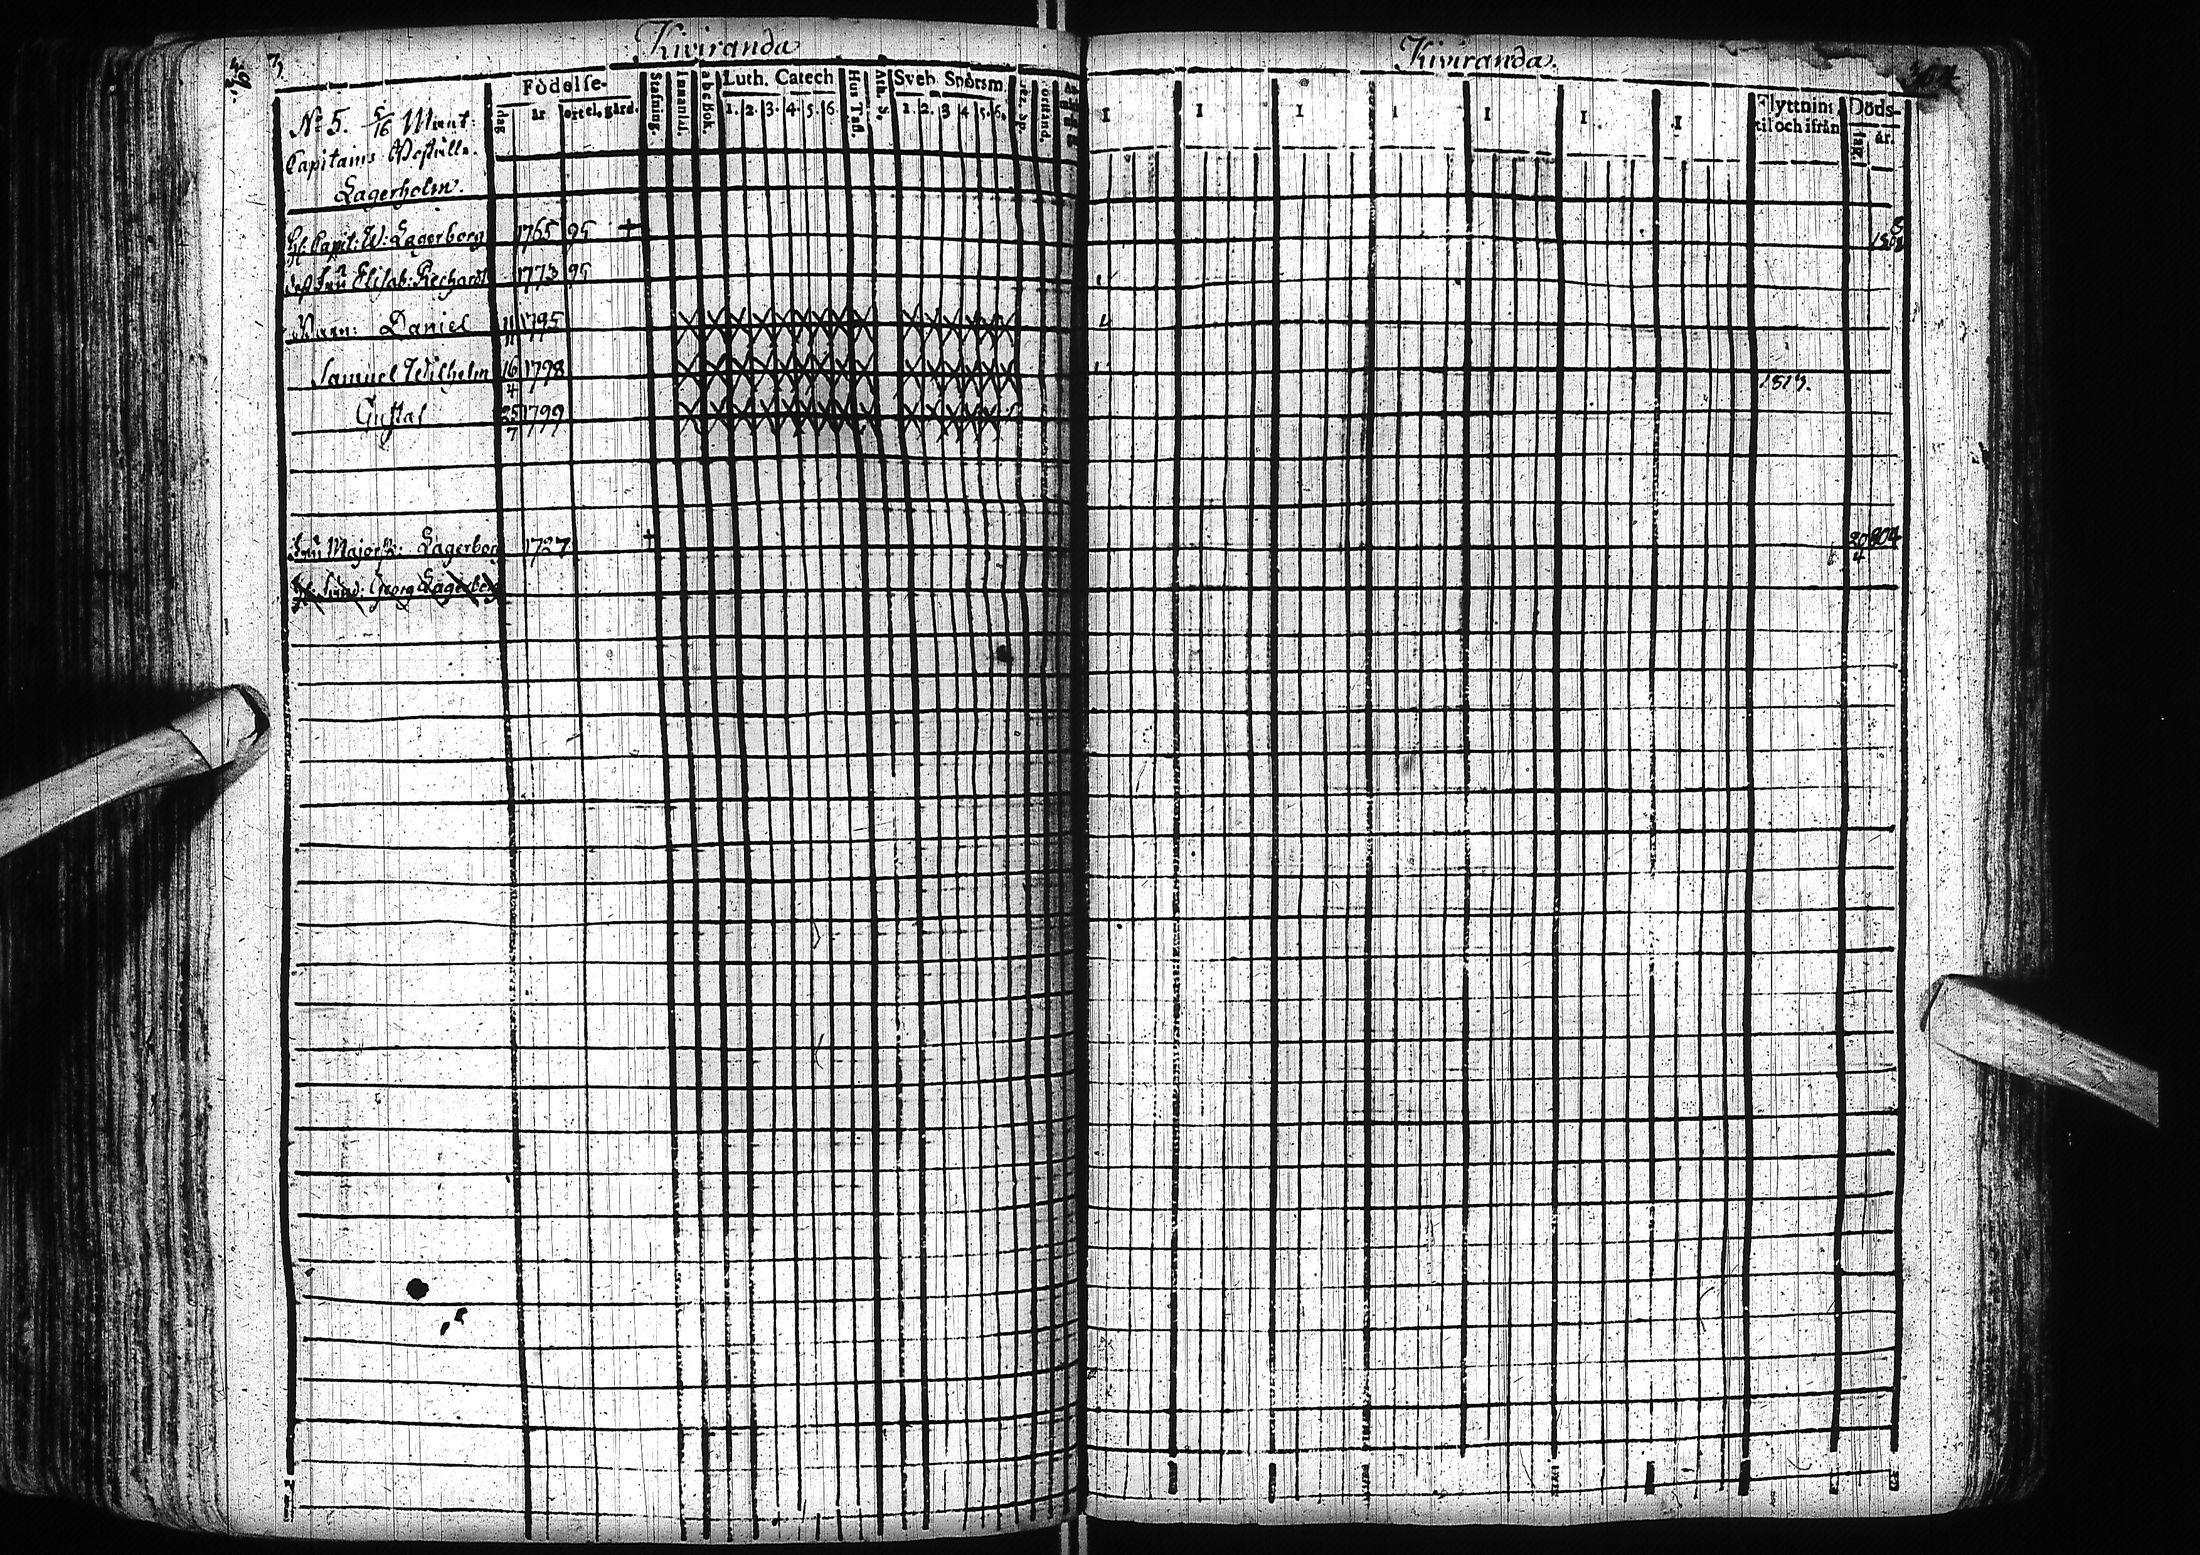 Kiviranda
Kiviranda.
Födelse-
dag
år
Stafning.
Innanläs.
abc Bok.
Luth. Catech
1. 2. 3. 4. 5. 6.
Hus Tafl.
Ath. S.
Sveb. Spörsm.
1. 2. 3 4 5. 6.
Förstånd.
I I I I I I I
Flyttning
til och ifrån
Döds-
dag. år.
No 5. 5/16 Mant:
Capitains Boställe.
Lagerholm.
Hr Capit: W: Lagerborg 1765 95 +
Fru Elisab: Rechardt 1773 95
Barn: Daniel 11/11 1795
Samuel Wilhelm 16/4 1798 1817.
Gustaf 25/7 1799
Fru Majorsk: Lagerborg 1727 + 20/4 804
Georg Lagerborg